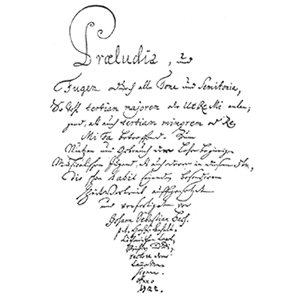 Præludia, und
Fugen durch alle Tone und Semitonia,
So wohl tertiam majorem oder Ut Re Mi anlan-
gend, als auch tertiam minorem oder Re
Mi Fa betreffend. Zum
Nutzen und Gebrauch der Lehrbegierigen
Musicalischen Jugend, als auch derer in diesem stu-
dio schon habil seyenden besonderem
Zeitvertreib auffgesetzet
und verfertiget von
Johann Sebastian Bach.
p. t.
Anno
1722.